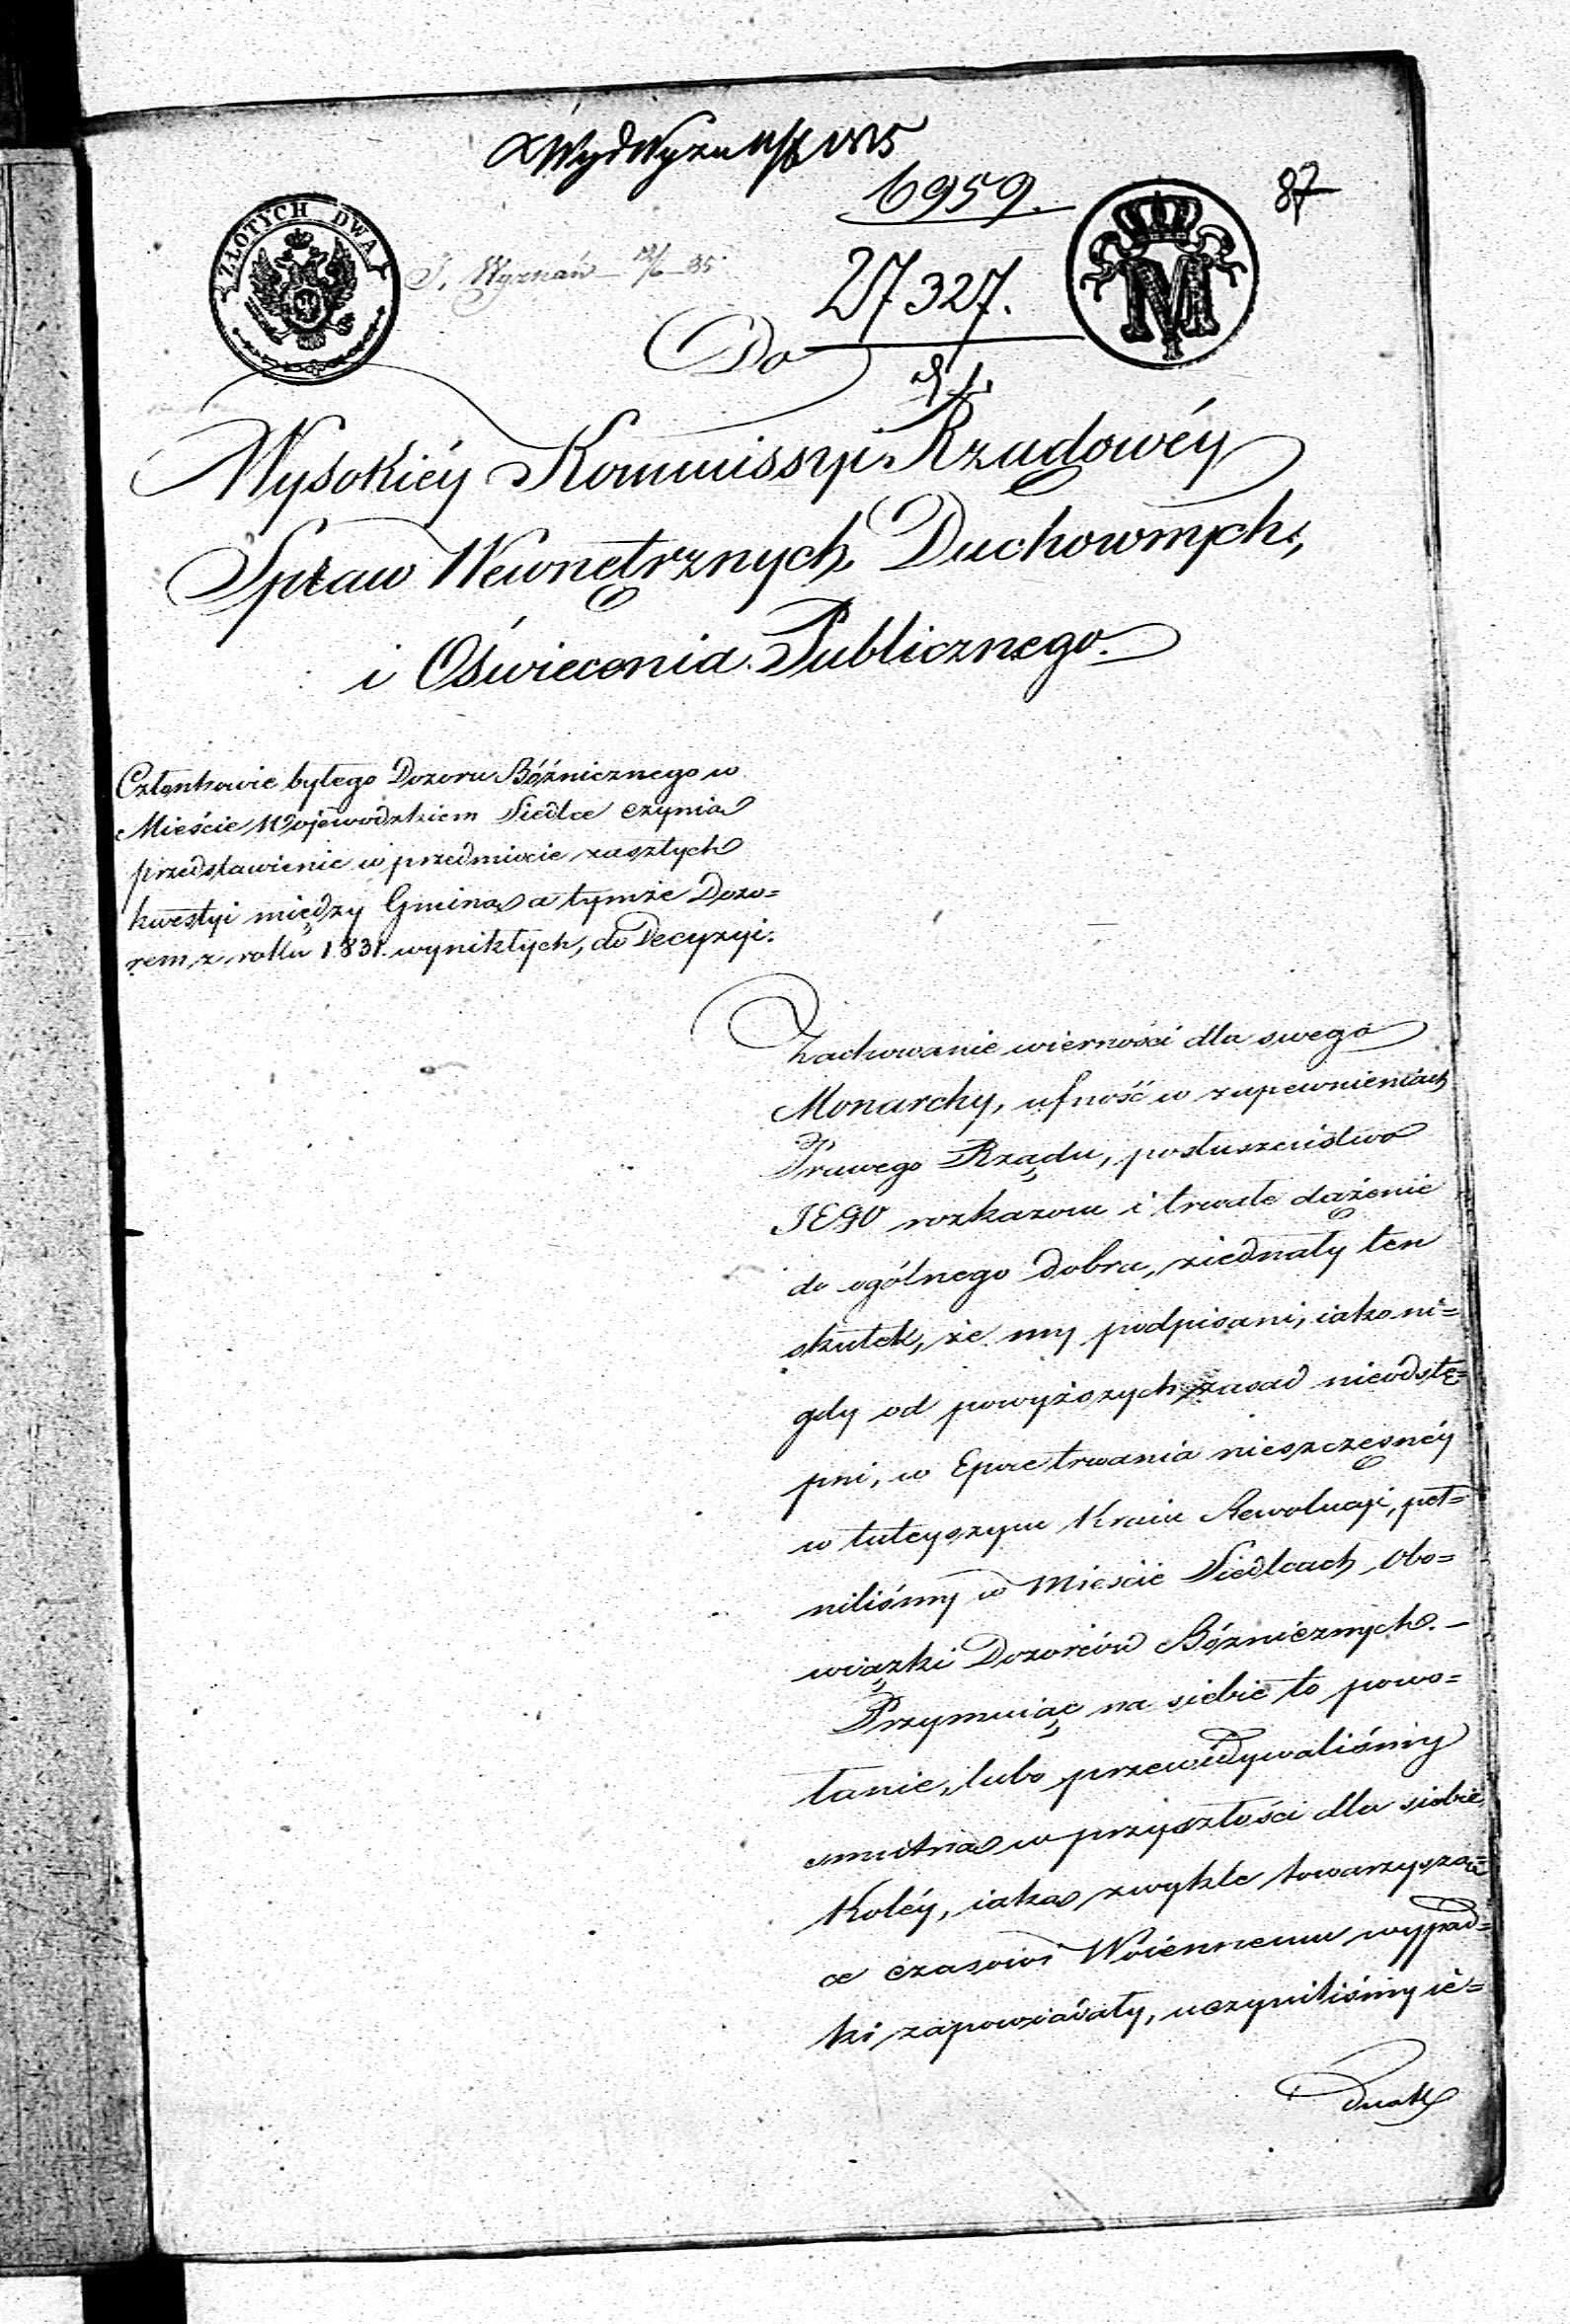 6959.
87
ZŁOTYCH DWA
J. Wyznań 12/6 35
27327.
M
Do
Wysokiéy Kommissyi Rządowéy
Spraw Wewnętrznych Duchownych,
i Oświecenia Publicznego.
Członkowie byłego Dozoru Bóżnicznego w
Mieście Wojewodzkiem Siedlce czynią
przedstawienie w przedmiocie zaszłych
kwestyi między Gminą a tymże Dozo=
rem z roku 1831. wynikłych, do Decyzyi.
Zachowanie wierności dla swego
Monarchy, ufność w zapewnieniach
Prawego Rządu, posłuszeństwo
JEGO rozkazom i trwałe dążenie
do ogólnego dobra, ziednały ten
skutek, że my podpisani, iako ni=
gdy od powyższych zasad nieodstę=
pni, w Epoce trwania nieszczęsnéy
w tuteyszym Kraiu Rewolucyi, peł=
niliśmy w Mieście Siedlcach Obo=
wiązki Dozorców Bóżnicznych. —
Przymuiąc na siebie to powo=
łanie, lubo przewidywaliśmy
smutną w przyszłości dla siebie
Koléy, iaką zwykle towarzyszą=
ce czasowi Woiennemu wypad=
ki zapowiadały, uczyniliśmy ie=
dnak